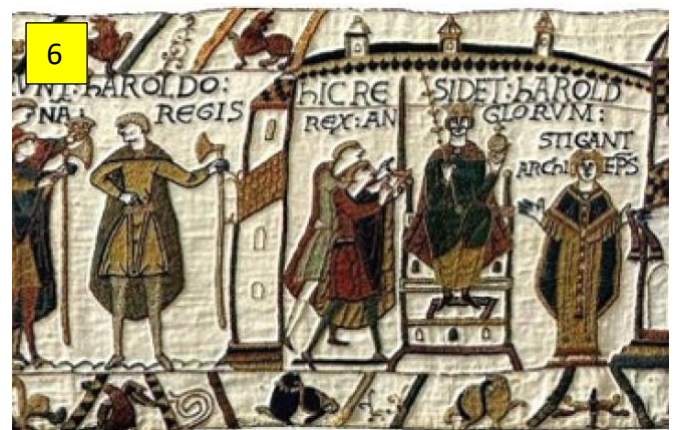 6
RVNT: hAROLDO:
NA: REGIS
hIC RE SIDET: hAROLD
REX: AN GLORVM:
STIGANT
ARChI EPS